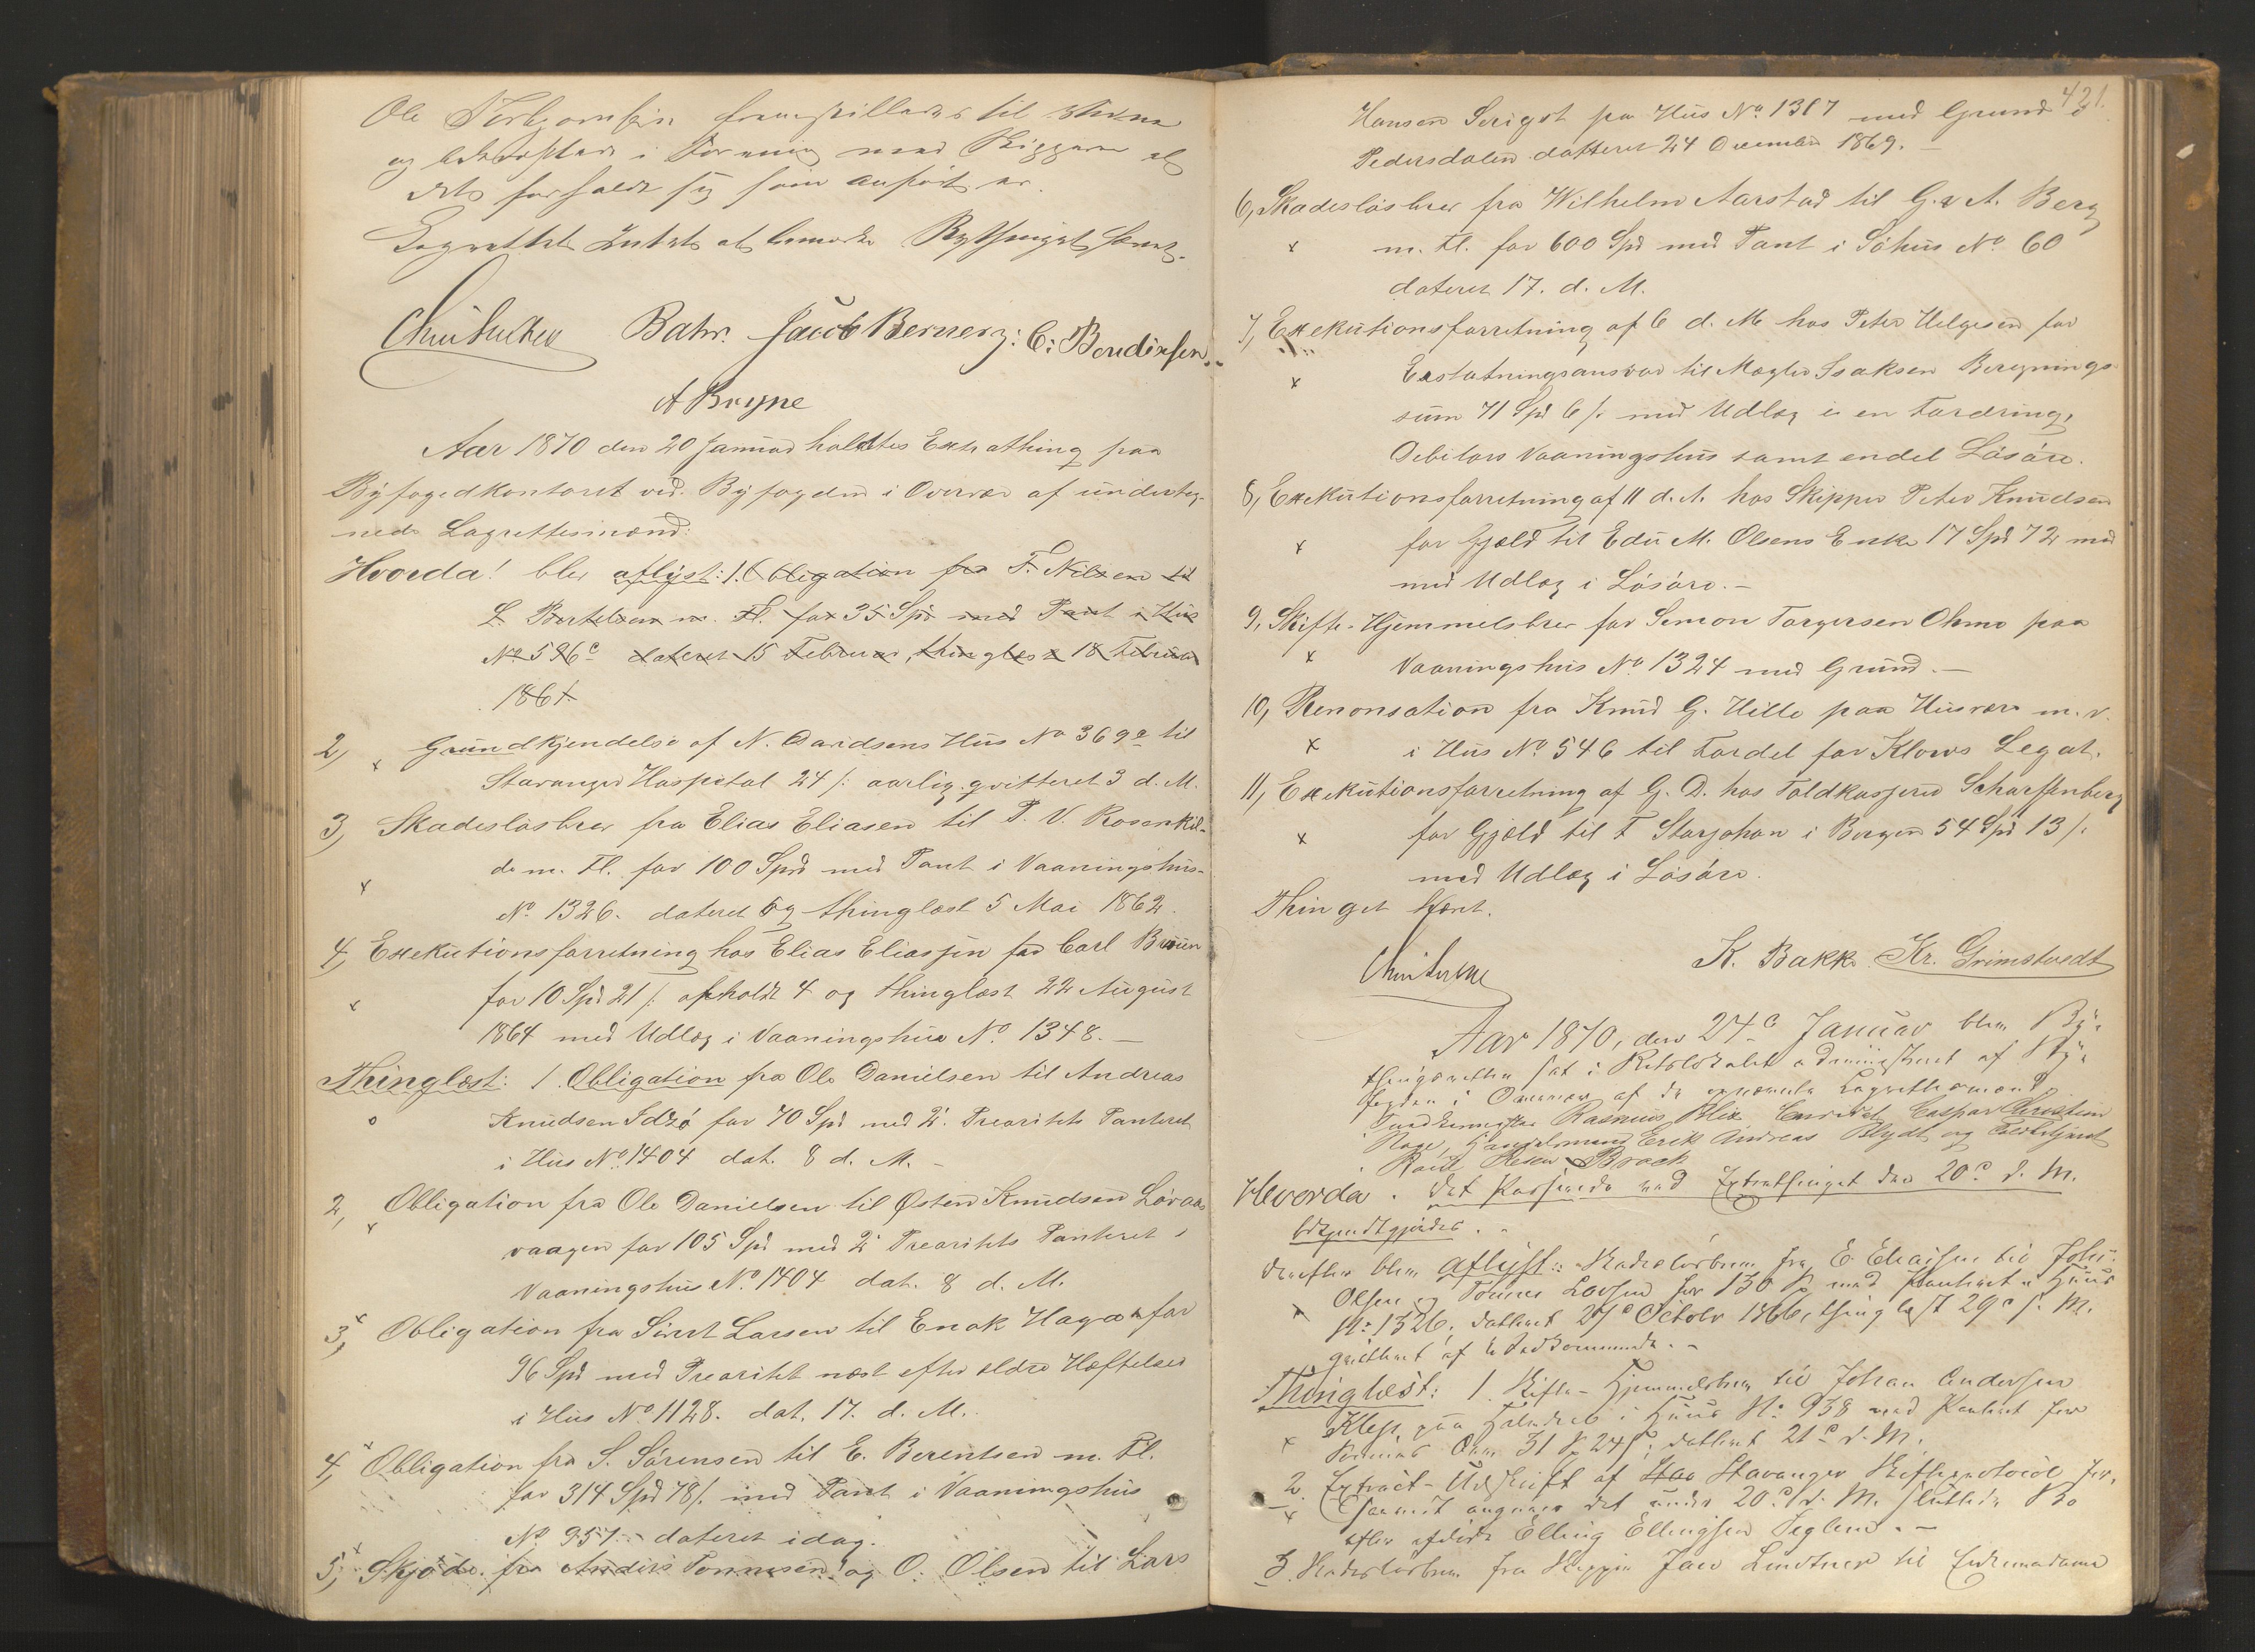 Ole Torbjørnsen fremstilledes til
og bekræftede i Forening med Skipperen at
dets forholdt sig som anført er.
Lagrettet Intet at bemærke Bythinget hævet.
Christensen Bahr. Jacob Berner: C: Berentsen.
A Bryne
Aar 1870 den 20 Januar holdtes Extrathing paa
Byfogedkontoret ved Byfogden i Overvær af underteg-
nede Lagrettesmænd:
Hvorda! blev aflyst: 1. Obligation fra F. Nilsen til
L. Bertelsen m. Fl. for 35 Spd med Pant i Hus
No 596c dateret 15 Februar, thinglæst 18 Februar
1861.
2, Grundkjendelse af N. Davidsens Hus No 369a til
Stavanger Hospital 24 /: aarlig qvitteret 3 d. M.
3, Skadesløsbrev fra Elias Eliasen til P. V. Rosenkil-
de m. Fl. for 100 Spd med Pant i Vaaningshus-
No 1326. dateret og thinglæst 5 Mai 1862.
4, Exekutionsforretning hos Elias Eliassen for Carl Bruun
for 10 Spd 21 /: afholdt 4 og thinglæst 22 August
1864 med Udlæg i Vaaningshus No 1348. —
Thinglæst: 1. Obligation fra Ole Danielsen til Andreas
Knudsen Idzø for 70 Spd med 2: Prioritets Panteret
i Hus No 1404 dat. 8 d. M. —
2, Obligation fra Ole Danielsen til Østen Knudsen Løvaas
vaagen for 105 Spd med 2: Prioritets Panteret i
Vaaningshus No 1404 dat. 8 d. M.
3, Obligation fra Sivert Larsen til Enok Hagen for
96 Spd med Prioritet næst efter ældre Hæftelser
i Hus No 1128. dat. 17. d. M.
4, Obligation fra S. Sørensen til E. Berentsen m. Fl.
for 314 Spd 78 /. med Pant i Vaaningshus
No 957. dateret idag.
5, Skjøde fra Anders Tønnesen og O. Olsen til Lars
421.
Hansen Serigst paa Hus No 1317 med Grund i
Pedersdalen datteret 24 December 1869. —
6, Skadesløsbrev fra Wilhelm Aarstad til G. A. Berg
m. Fl. for 600 Spd med Pant i Søhus No 60
dateret 17. d. M.
7, Exekutionsforretning af 6 d. M. hos Peter Helgesen for
Erstatningsansvar til Mægler Isaksen Beregnings-
sum 71 Spd 6 /. med Udlæg i en Fordring,
Debitors Vaaningshus samt endel Løsøre.
8, Exekutionsforretning af 11 d. M. hos Skipper Peter Knudsen
for Gjæld til Edu M. Olsens Enke 17 Spd 72 med
med Udlæg i Løsøre. —
9, Skifte-Hjemmelsbrev for Simon Torgersen Ohmo paa
Vaaningshus No 1324 med Grund. —
10, Renonsation fra Knud G. Hille paa Husvære m. v.
i Hus No 546 til Fordel for Klows Legat.
11, Exekutionsforretning af G. D. hos Toldkasserer Scharffenberg
for Gjæld til F Storjohan i Bergen 54 Spd 13 /.
med Udlæg i Løsøre.
Thinget hævet.
Christensen K. Bakke Kr. Grimstvedt
Aar 1870, den 27de Januar blev By-
thingsretten sat i Retslokalet administreret af By-
fogden i Overvær af de opnævnte Lagrettesmænd
Rasmus Blix Caspar Christian
Rage, Handelsmand Erik Andreas Blydt og
Broch
Hvorda. Det Passerede ved Extrathinget den 20de d. M.
bekjendtgjordes. —
Derefter blev aflyst: Skadesløsbrev fra E Eliassen til John
Olsen og Tønnes Larsen for 130 Sp med Panteret i Huus
No 1326. datteret 27de October 1866, thinglæst 29de s. M.
qvitteret af Vedkommende. —
Thinglæst: 1. Skifte-Hjemmelsbrev til Johan Andersen
Klep paa Halvdel i Huus No 938 med Panteret for
31 Sp 24 /: datteret 21de d. M.
2. Extract-Udskrift af Stavanger Skifteprotocol for-
saavidt angaaer det under 20de d. M. sluttede Bo
efter afdøde Elling Ellingsen Tegland. —
3. Skadesløsbrev fra Skipper Jan Lindtner til Enkemadame